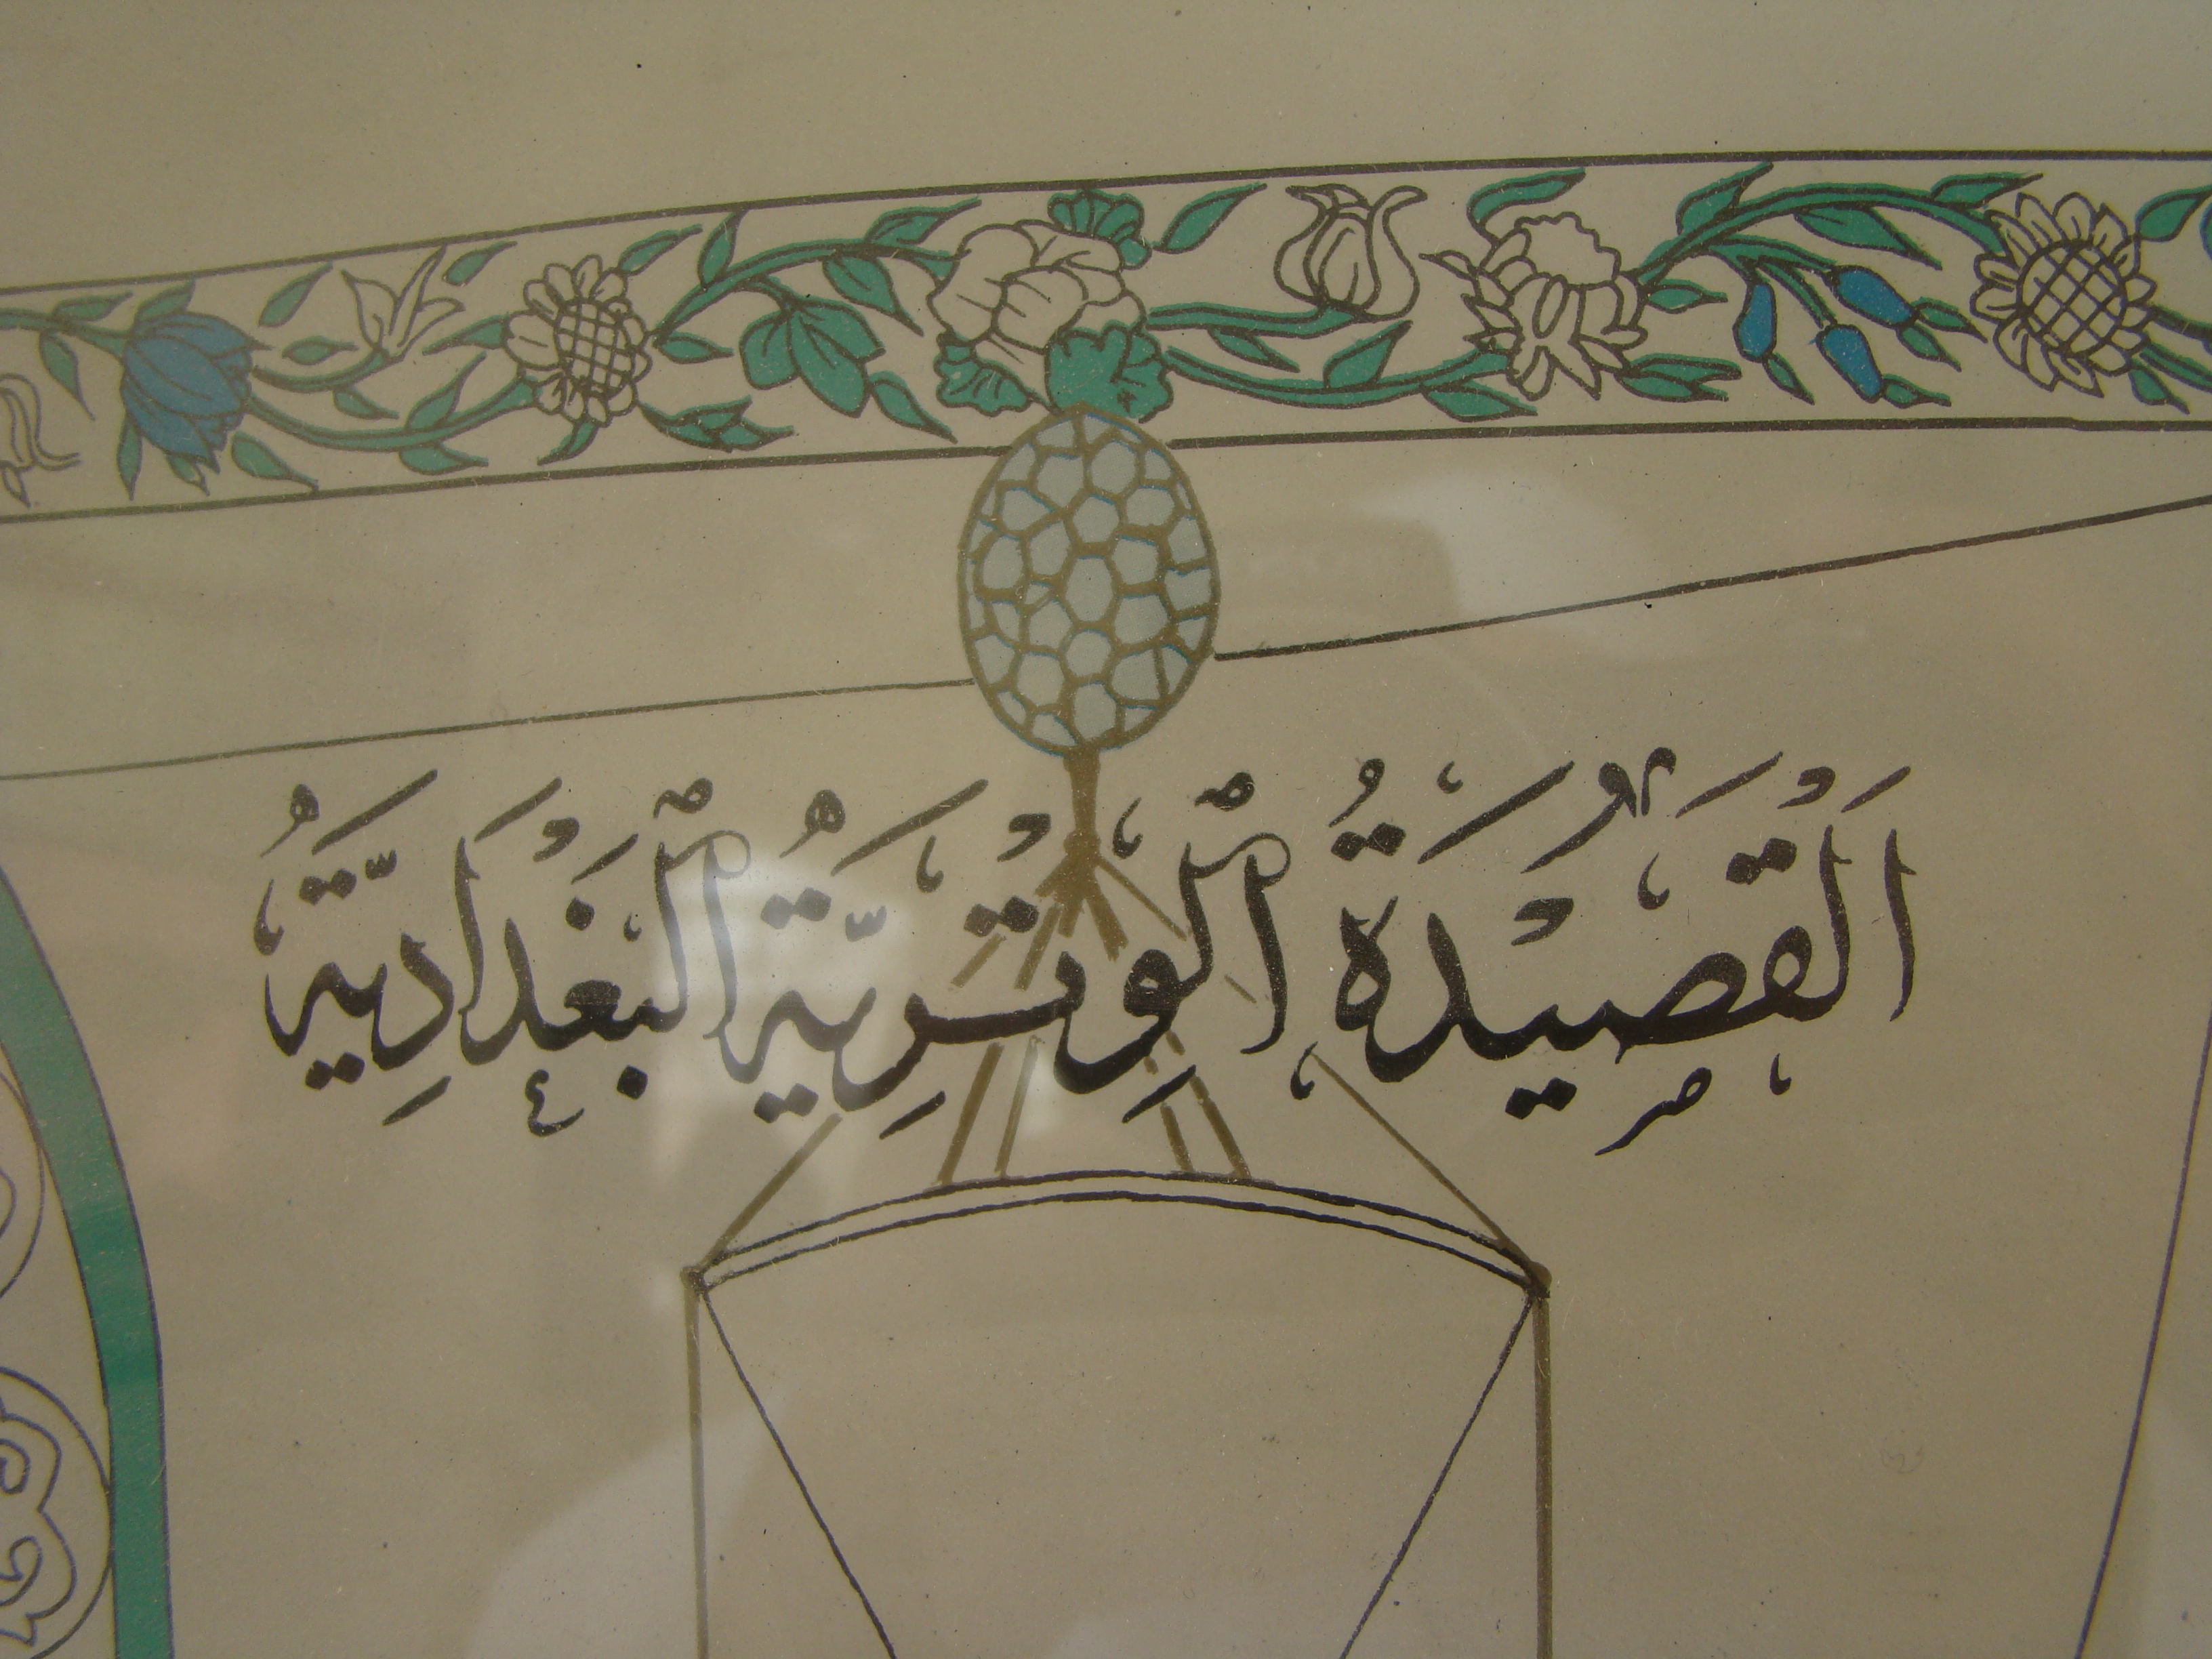 اَلْقَصِيْدَةُ الْوِتْرِيَّةُ الْبَغْدَادِيَّةُ